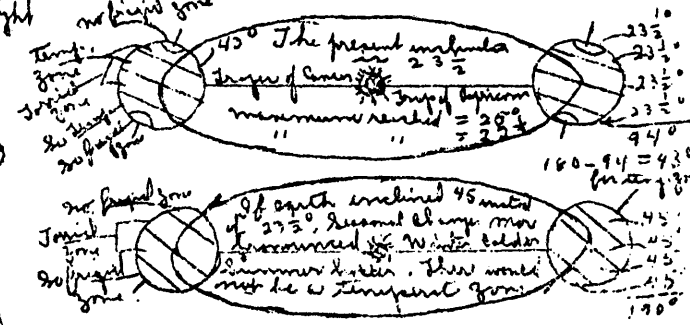 ght
no frigid zone
Temp.
zone
Torrid
zone
So Temp
So frigid
zone
43°
The present inclination
23½
Tropic of Cancer
Tropic of Capricorn
maximum reached = 26½°
" " = 22½
23½°
23½°
23½°
23½°
94°
180-94 = 43°
for temp. zone
No frigid zone
Torrid
zone
So frigid
zone
If earth inclined 45 instead
of 23½°, seasonal change more
pronounced. Winter colder
Summer hotter. There would
not be a temperate zone.
45
45
45
45
180°